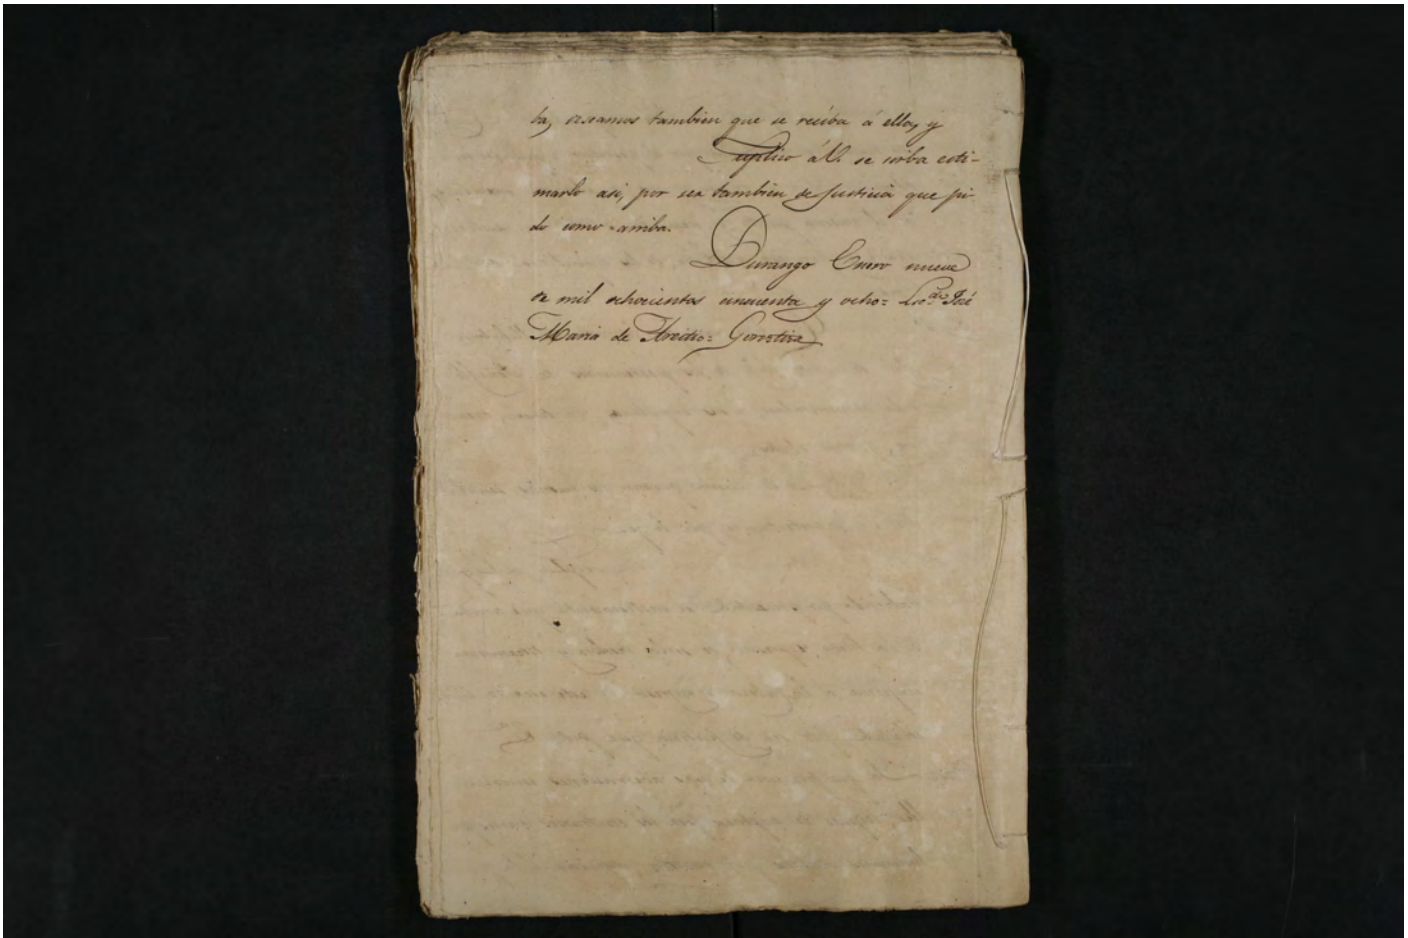 ta, deseamos tambien que se reciba á ella, y
Suplico á V. se sirba esti-
marlo asi, por ser tambien de Justicia que pi-
do como arriba.
Durango Enero nueve
de mil ochocientos cincuenta y ocho= Lic.do José
Maria de Areitio= Gorostiza